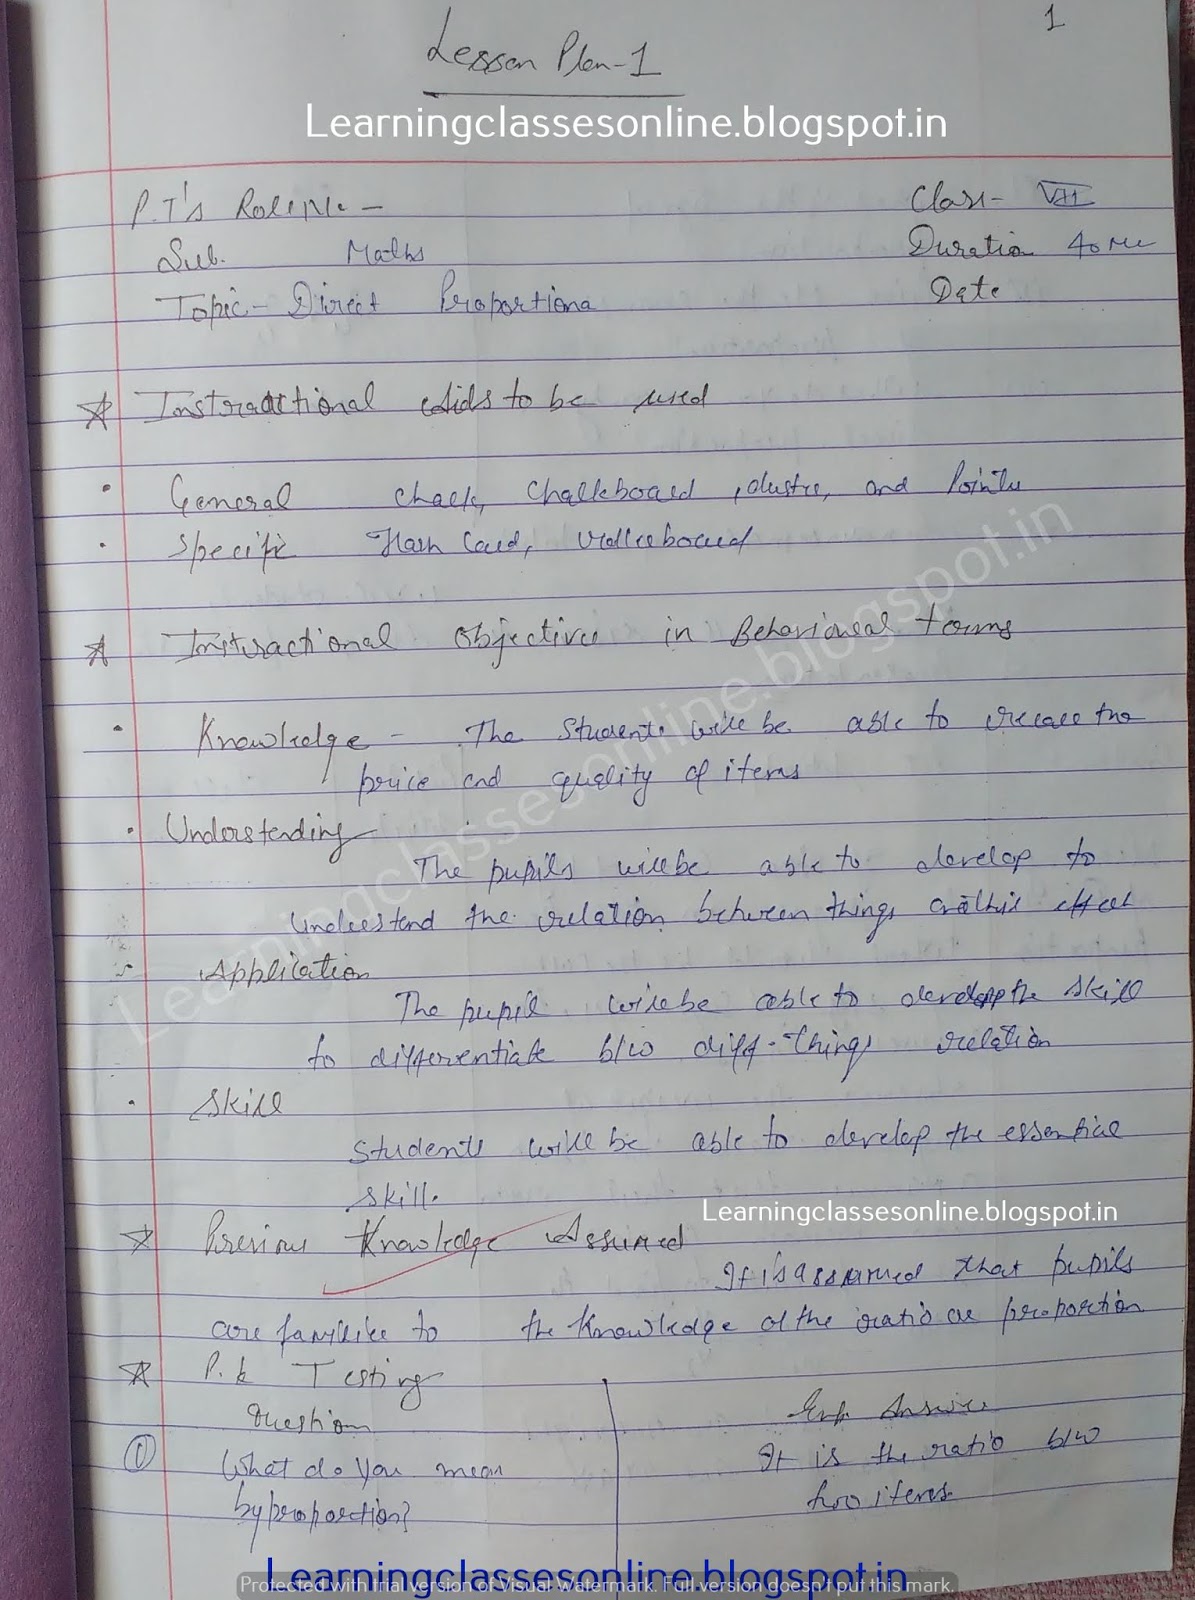 1
Lesson Plan-1
Learningclassesonline.blogspot.in
P.T's Roll No. - Class- VII
Sub. Maths Duration 40
Topic - Direct Proportions Date
Instractional Aids to be used
General chalk, Chalkboard, duster, and Pointer
Specific Flash Card, Rollerboard
Instractional Objectives in Behavioral terms
Knowledge - The Students will be able to recall the
price and quality of items
Understanding
The pupils will be able to develop to
understand the relation between things effect
Application
The pupil will be able to develop the skill
to differentiate b/w diff. things relation
Skill
Students will be able to develop the essential
skill.
Learningclassesonline.blogspot.in
Previous Knowledge Assumed
It is assumed that pupils
are familier to the knowledge of the ratio or proportion
P.k Testing
Question Exp. Answer
① What do you mean It is the ratio b/w
by proportion? two items
Learningclassesonline.blogspot.in
Learningclassesonline.blogspot.in
Protected with trial version of Visual Watermark. Full version doesn't put this mark.